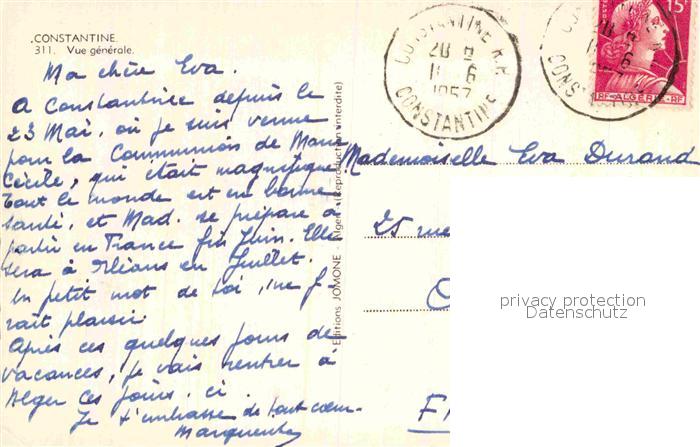 CONSTANTINE.
311. Vue générale.
Ma chère Eva.
A Constantine depuis le
23 Mai, où je suis venue
pour la Communion de Marie
Cécile, qui était magnifique
Tout le monde est en bonne
santé, et Mad. se prépare à
partir en France fin Juin. Elle
sera à Orléans en Juillet.
Un petit mot de toi, me fe-
rait plaisir.
Après ces quelques jours de
vacances, je vais rentrer à
Alger ces jours. ci.
Je t'embrasse de tout cœur.
Marguerite
Editions JOMONE - Alger - (Reproduction interdite)
CONSTANTINE R.P.
20 H
1957
CONSTANTINE
15
RF-ALGERIE-RF
Mademoiselle Eva Durand
25 rue
privacy protection
Datenschutz